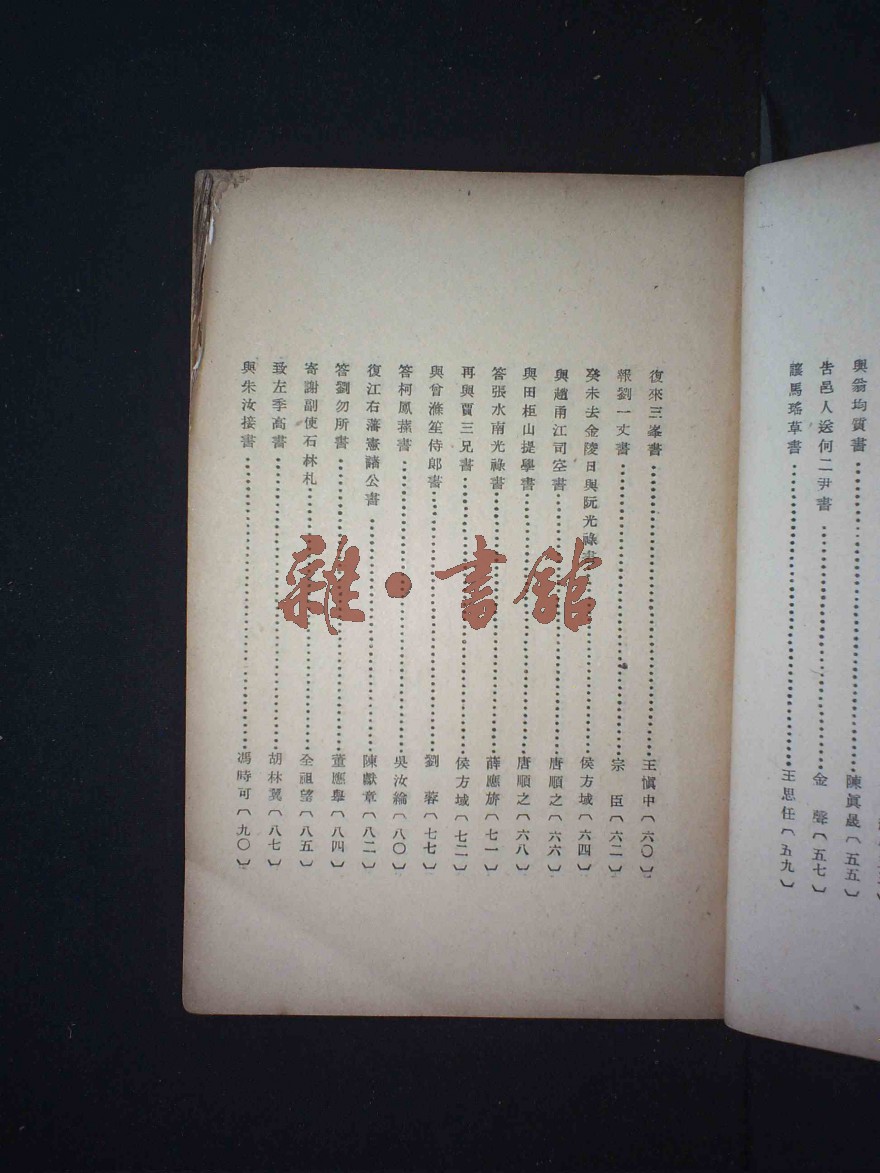 與翁均質書……陳眞晟〔五五〕
告邑人送何二尹書……金　聲〔五七〕
讓馬瑤草書……王思任〔五九〕
復來三峯書……王愼中〔六〇〕
報劉一丈書……宗　臣〔六二〕
癸未去金陵日與阮光祿書……侯方城〔六四〕
與趙甬江司空書……唐順之〔六六〕
與田柜山提學書……唐順之〔六八〕
答張水南光祿書……薛應旂〔七一〕
再與賈三兄書……侯方城〔七二〕
與曾滌笙侍郎書……劉　蓉〔七七〕
答柯鳳蓀書……吳汝綸〔八〇〕
復江右藩憲諸公書……陳獻章〔八二〕
答劉勿所書……董應舉〔八四〕
寄謝副使石林札……全祖望〔八五〕
致左季高書……胡林翼〔八七〕
與朱汝接書……馮時可〔九〇〕
雜·書館